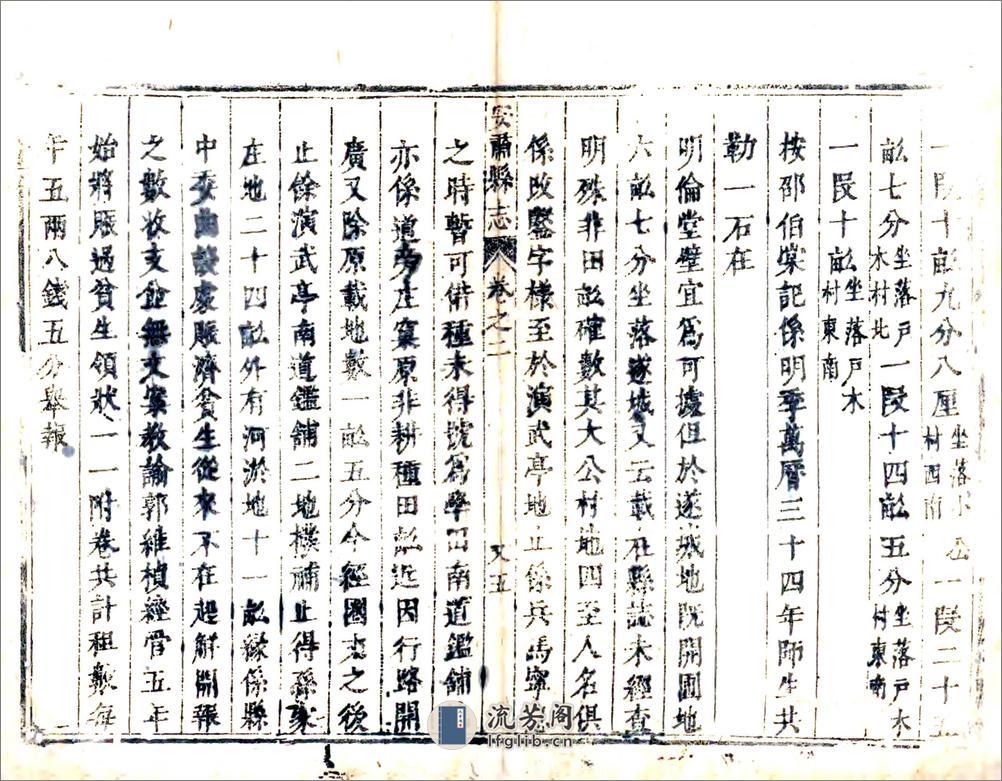 一段十畝九分八厘坐落 村西南 一段二十五
畝七分坐落戶木村北一段十四畝五分坐落戶木村東南
一段十畝坐落戶木村東南
按邵伯棠記係明季萬曆三十四年師生共
勒一石在
明倫堂壁宜爲可據但於遂城地既開園地
六畝七分坐落遂城又云載在縣誌未經查
明殊非田畝確數其大公村地四至人名俱
係改鑿字樣至於演武亭地止係兵馬寧
之時暫可借種未得抗爲學田南道鑑舖
安肅縣志 卷之二 又五
亦係道旁庄窠原非耕種田畝近因行路開
廣又除原載地數一畝五分今經圈丈之後
止餘演武亭南道鑑舖二地樸補止得孫家
庄地二十四畝外有河淤地十一畝緣係縣
中委曲設處賑濟貧生從來不在起解開報
之數收支並無文案教諭郭維楨經管五年
始將賑過貧生領狀一一附卷共計租數每
年五兩八錢五分舉報
流芳阁
lfglib.cn